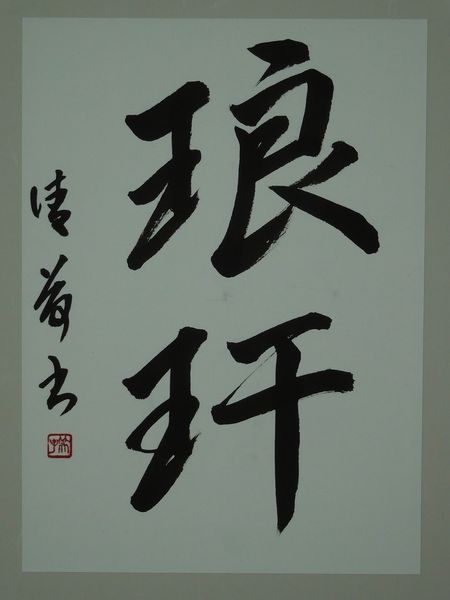 琅玕
清芳書